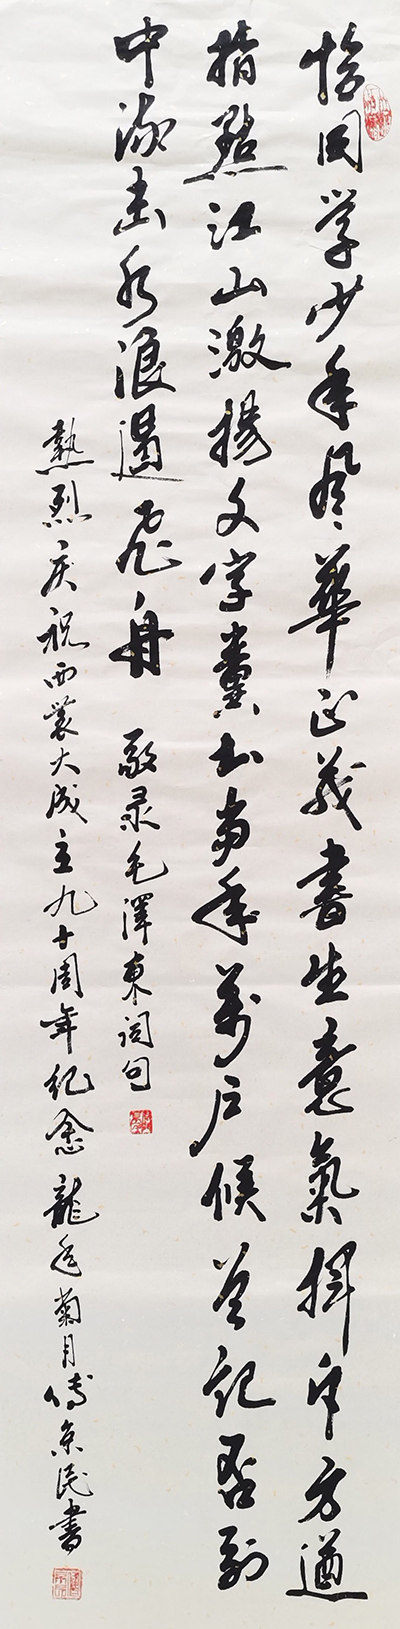 恰同学少年风華正茂書生意氣揮斥方遒
指點江山激揚文字糞土当年萬户候曾記否到
中流击水浪遏飛舟 敬录毛澤東词句
熱烈庆祝西農大成立九十周年纪念 龍年菊月傅京民書